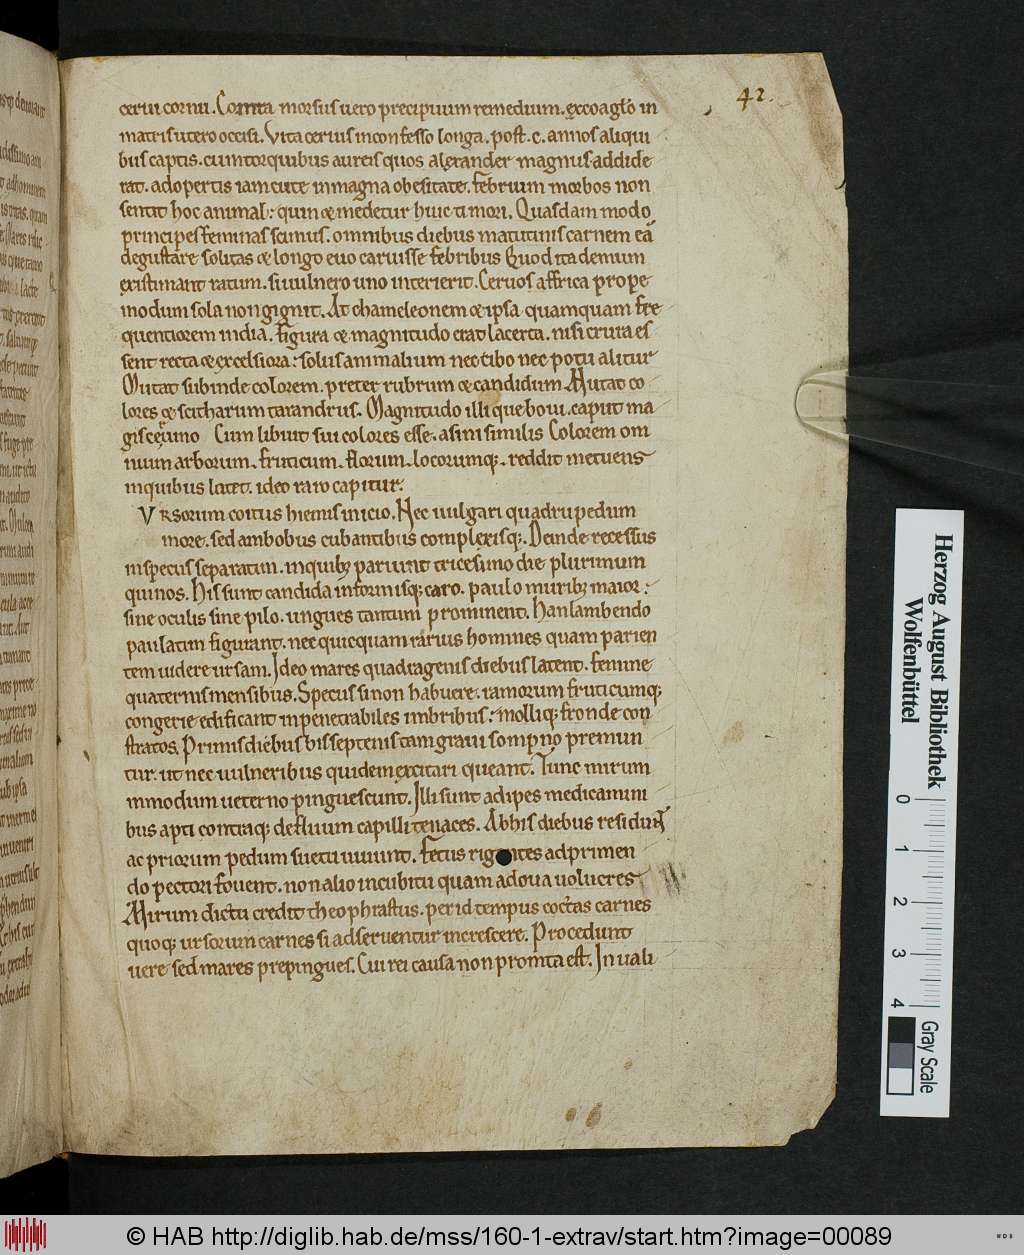 42.
cerui cornu. Contra morsus uero precipuum remedium. ex coaguło in
matris utero occisi. Vita ceruis in confesso longa. post .c. annos aliqui
bus captis. cum torquibus aureis quos alexander magnus addide
rat. adopertis iam cute in magna obesitate. febrium morbos non
sentit hoc animal: quin & medetur huic timori. Quasdam modo
principes feminas scimus. omnibus diebus matutinis carnem eā
degustare solitas & longo euo caruisse febribus Quod ita demum
existimant ratum. si uulnere uno interierit. Ceruos affrica prope
modum sola non gignit. At chameleonem & ipsa quamquam fre
quentiorem india. figura & magnitudo erat lacerta. nisi crura es
sent recta & excelsiora: solus animalium nec cibo nec potu alitur
Mutat subinde colorem. preter rubrum & candidum Mutat co
lores & scitharum tarandrus. Magnitudo illi que boui. caput ma
gis ceruino Cum libuit sui coloris esse. asini similis Colorem om
nium arborum. fruticum. florum. locorumq;. reddit metuens
in quibus latet. ideo raro capitur.
VRsorum coitus hiemis inicio. Nec uulgari quadrupedum
more. sed ambobus cubantibus complexisq;. Deinde recessus
in specus separatim. in quib; pariunt tricesimo die plurimum
quinos. His sunt candida informisq; caro. paulo murib; maior:
sine oculis sine pilo. ungues tantum prominent. Han lambendo
paulatim figurant. nec quicquam rarius homines quam parien
tem uidere ursam. Ideo mares quadragenis diebus latent. femine
quaternis mensibus. Specus si non habuere. ramorum fruticumq;
congerie edificant inpenetrabiles imbribus: molliq; fronde con
stratos. Primis diebus bis septenis tam graui sompno premun
tur. ut nec uulneribus quidem excitari queant. Tunc mirum
inmodum ueterno pinguescunt. Illi sunt adipes medicamini
bus apti contraq; defluuium capilli tenaces. Ab his diebus residunt
ac priorum pedum suctu uiuunt. Fetus rigentes adprimen
do pectori fouent. non alio incubitu quam ad oua uolucres
Mirum dictu credit theophrastus. per id tempus coctas carnes
quoq; ursorum carnes si adseruentur increscere. Procedunt
uere sed mares prepingues. Cui rei causa non promta est. In uali
Herzog August Bibliothek
Wolfenbüttel
0 1 2 3 4
Gray Scale
© HAB http://diglib.hab.de/mss/160-1-extrav/start.htm?image=00089